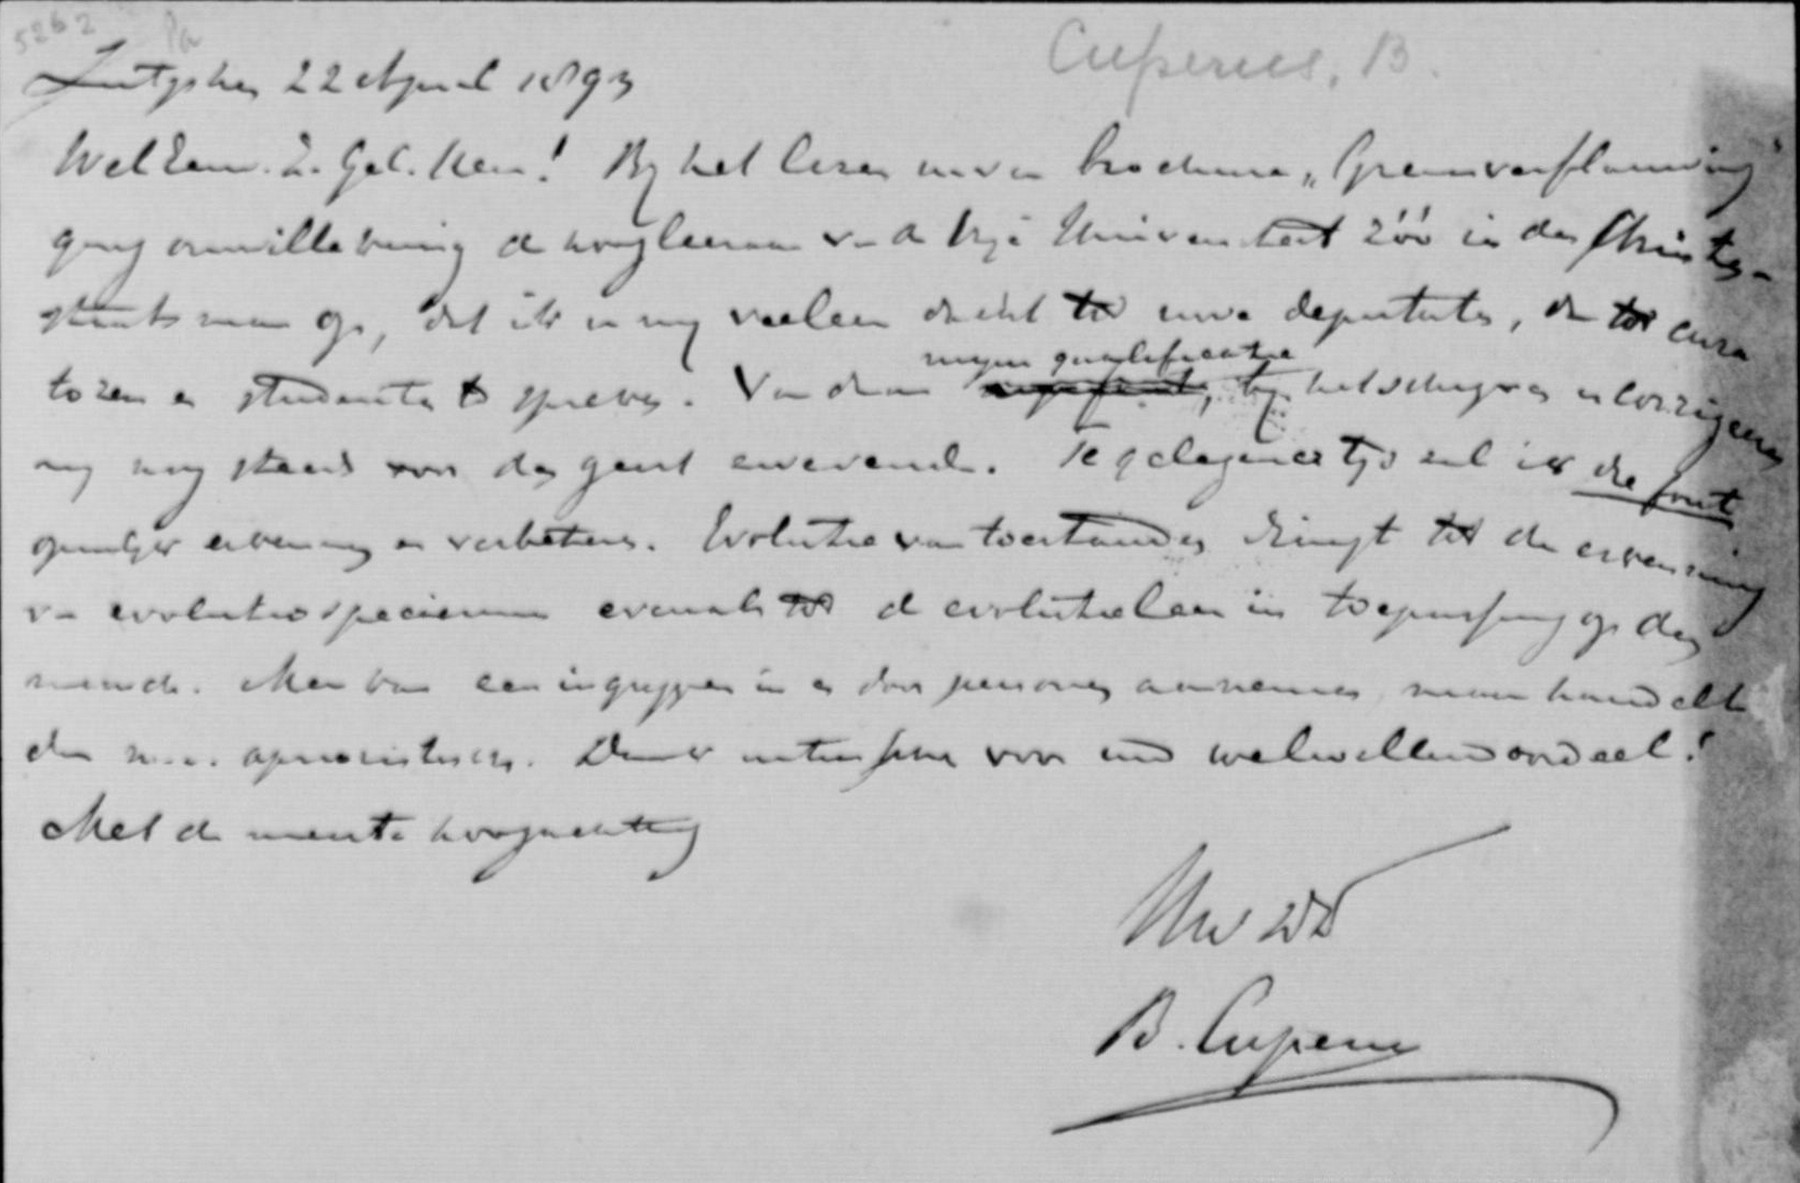 5262
Cuperus, B.
Zutphen 22 April 1893
WelEerw. Z. Gel. Heer! Bij het lezen uwer brochure „Grensverflauwing"
ging onwillekeurig de hoogleeraar v. d. Vrije Universiteit zóó in den Christen-
staatsman op, dat ik u mij veeleer dacht tot uwe deputaten, dan tot cura
toren en studenten te spreken. Van daar
mijne qualificatie
bij het schrijven en corrigeeren
mij nog steeds voor den geest zwevende. Te gelegener tijd zal ik die fout
openlijk erkennen en verbeteren. Evolutie van toestanden dringt tot de erkenning
van evolutie specierum evenals tot de evolutieleer in toepassing op den
mensch. Men kan een ingrijpen in en door personen aannemen, maar handelt
dan aprioristisch. Dank intusschen voor uw welwillend oordeel!
Met de meeste hoogachting
Uw
B. Cuperus